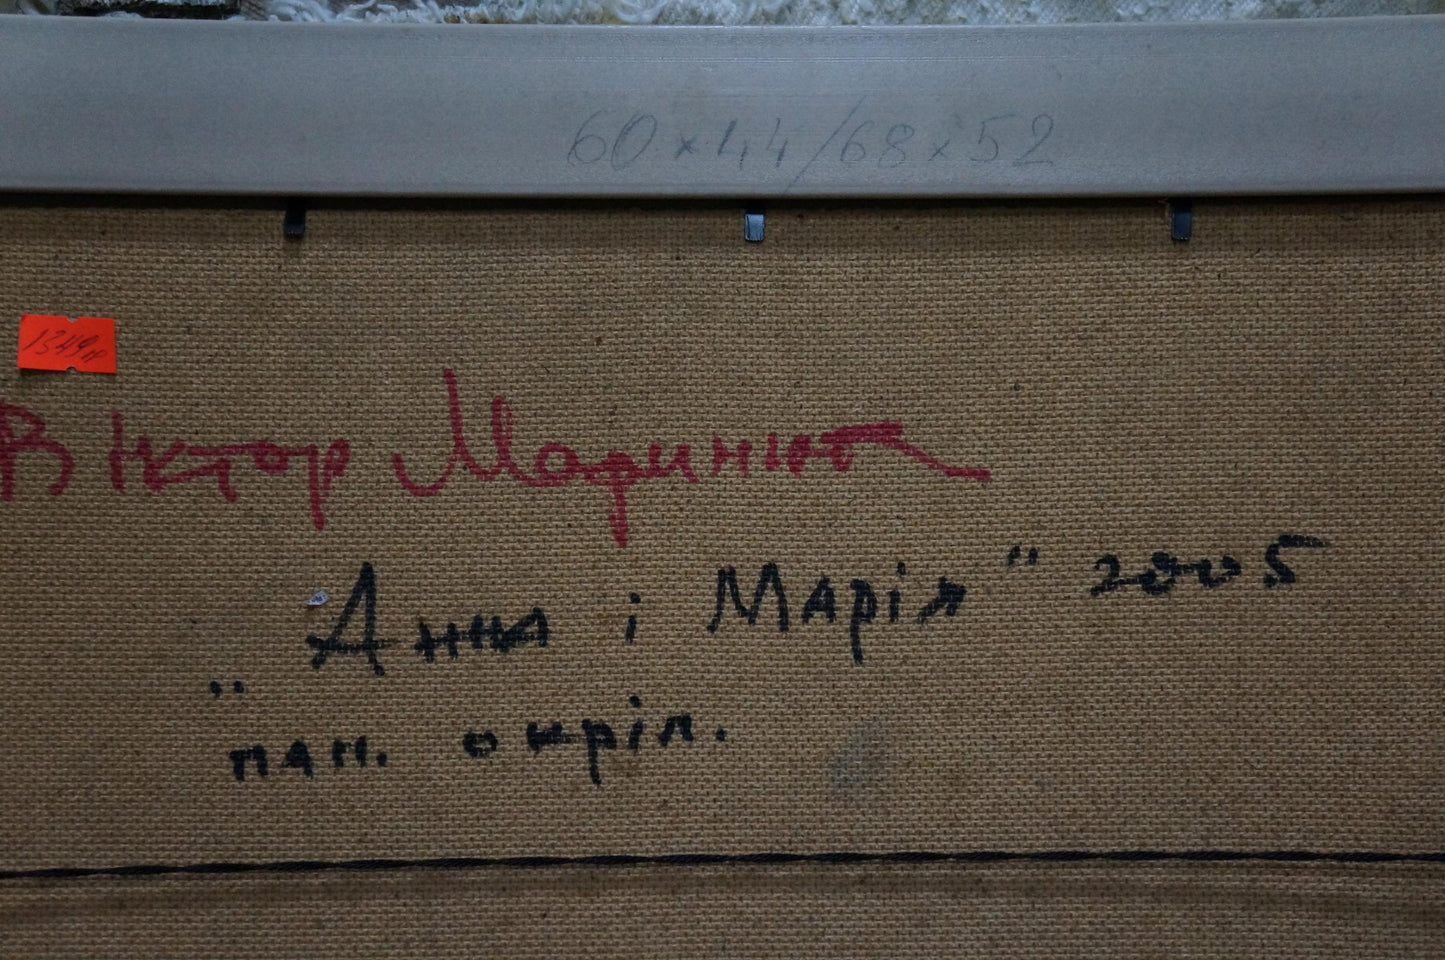 60×44/68×52
1349п
Віктор Маринюк
"Анна і Марія" 2005
пап. акріл.